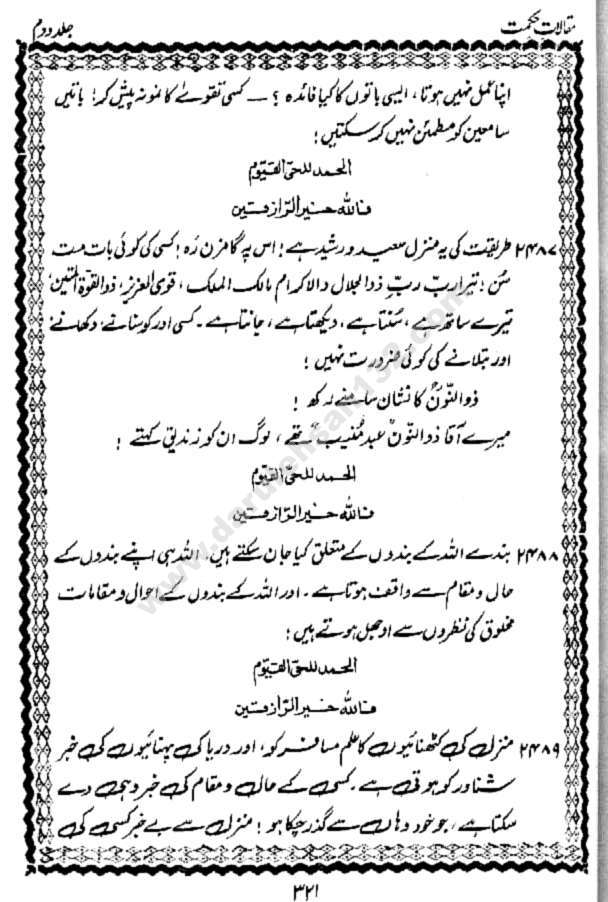 مقالاتِ حکمت
جلد دوم
اپنا عمل نہیں ہوتا، ایسی باتوں کا کیا فائدہ ؟ — کسی تقوےٰ کا نمونہ پیش کر! باتیں
سامعین کو مطمئن نہیں کر سکتیں!
الحمد للحیّ القیّوم
فاللہ خیر الرّازقین
۲۴۸۷ طریقت کی یہ منزل سعید و رشید ہے! اس پہ گامزن رَہ! کسی کی کوئی بات مت
سُن! تیرا ربّ ربِّ ذوالجلال والاکرام مالک الملک، قوی العزیز، ذوالقوۃ المتین،
تیرے ساتھ ہے، سُنتا ہے، دیکھتا ہے، جانتا ہے۔ کسی اور کو سنانے، دکھانے
اور بتلانے کی کوئی ضرورت نہیں!
ذوالنّونؒ کا نشان سامنے رکھ!
میرے آقا ذوالنّونؒ عبد مُنیب تھے، لوگ ان کو زندیق کہتے!
الحمد للحیّ القیّوم
فاللہ خیر الرّازقین
۲۴۸۸ بندے اللہ کے بندوں کے متعلق کیا جان سکتے ہیں۔ اللہ ہی اپنے بندوں کے
حال و مقام سے واقف ہوتا ہے۔ اور اللہ کے بندوں کے احوال و مقامات
مخلوق کی نظروں سے اوجھل ہوتے ہیں!
الحمد للحیّ القیّوم
فاللہ خیر الرّازقین
۲۴۸۹ منزل کی کٹھنائیوں کا علم مسافر کو، اور دریا کی پہنائیوں کی خبر
شناور کو ہوتی ہے۔ کسی کے حال و مقام کی خبر وہی دے
سکتا ہے، جو خود وہاں سے گذر چکا ہو! منزل سے بے خبر کسی کی
۳۲۱